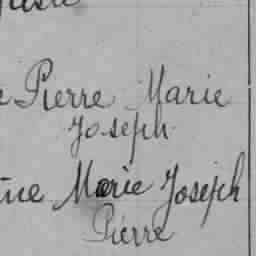 Pierre Marie
Joseph
Marie Joseph
Pierre